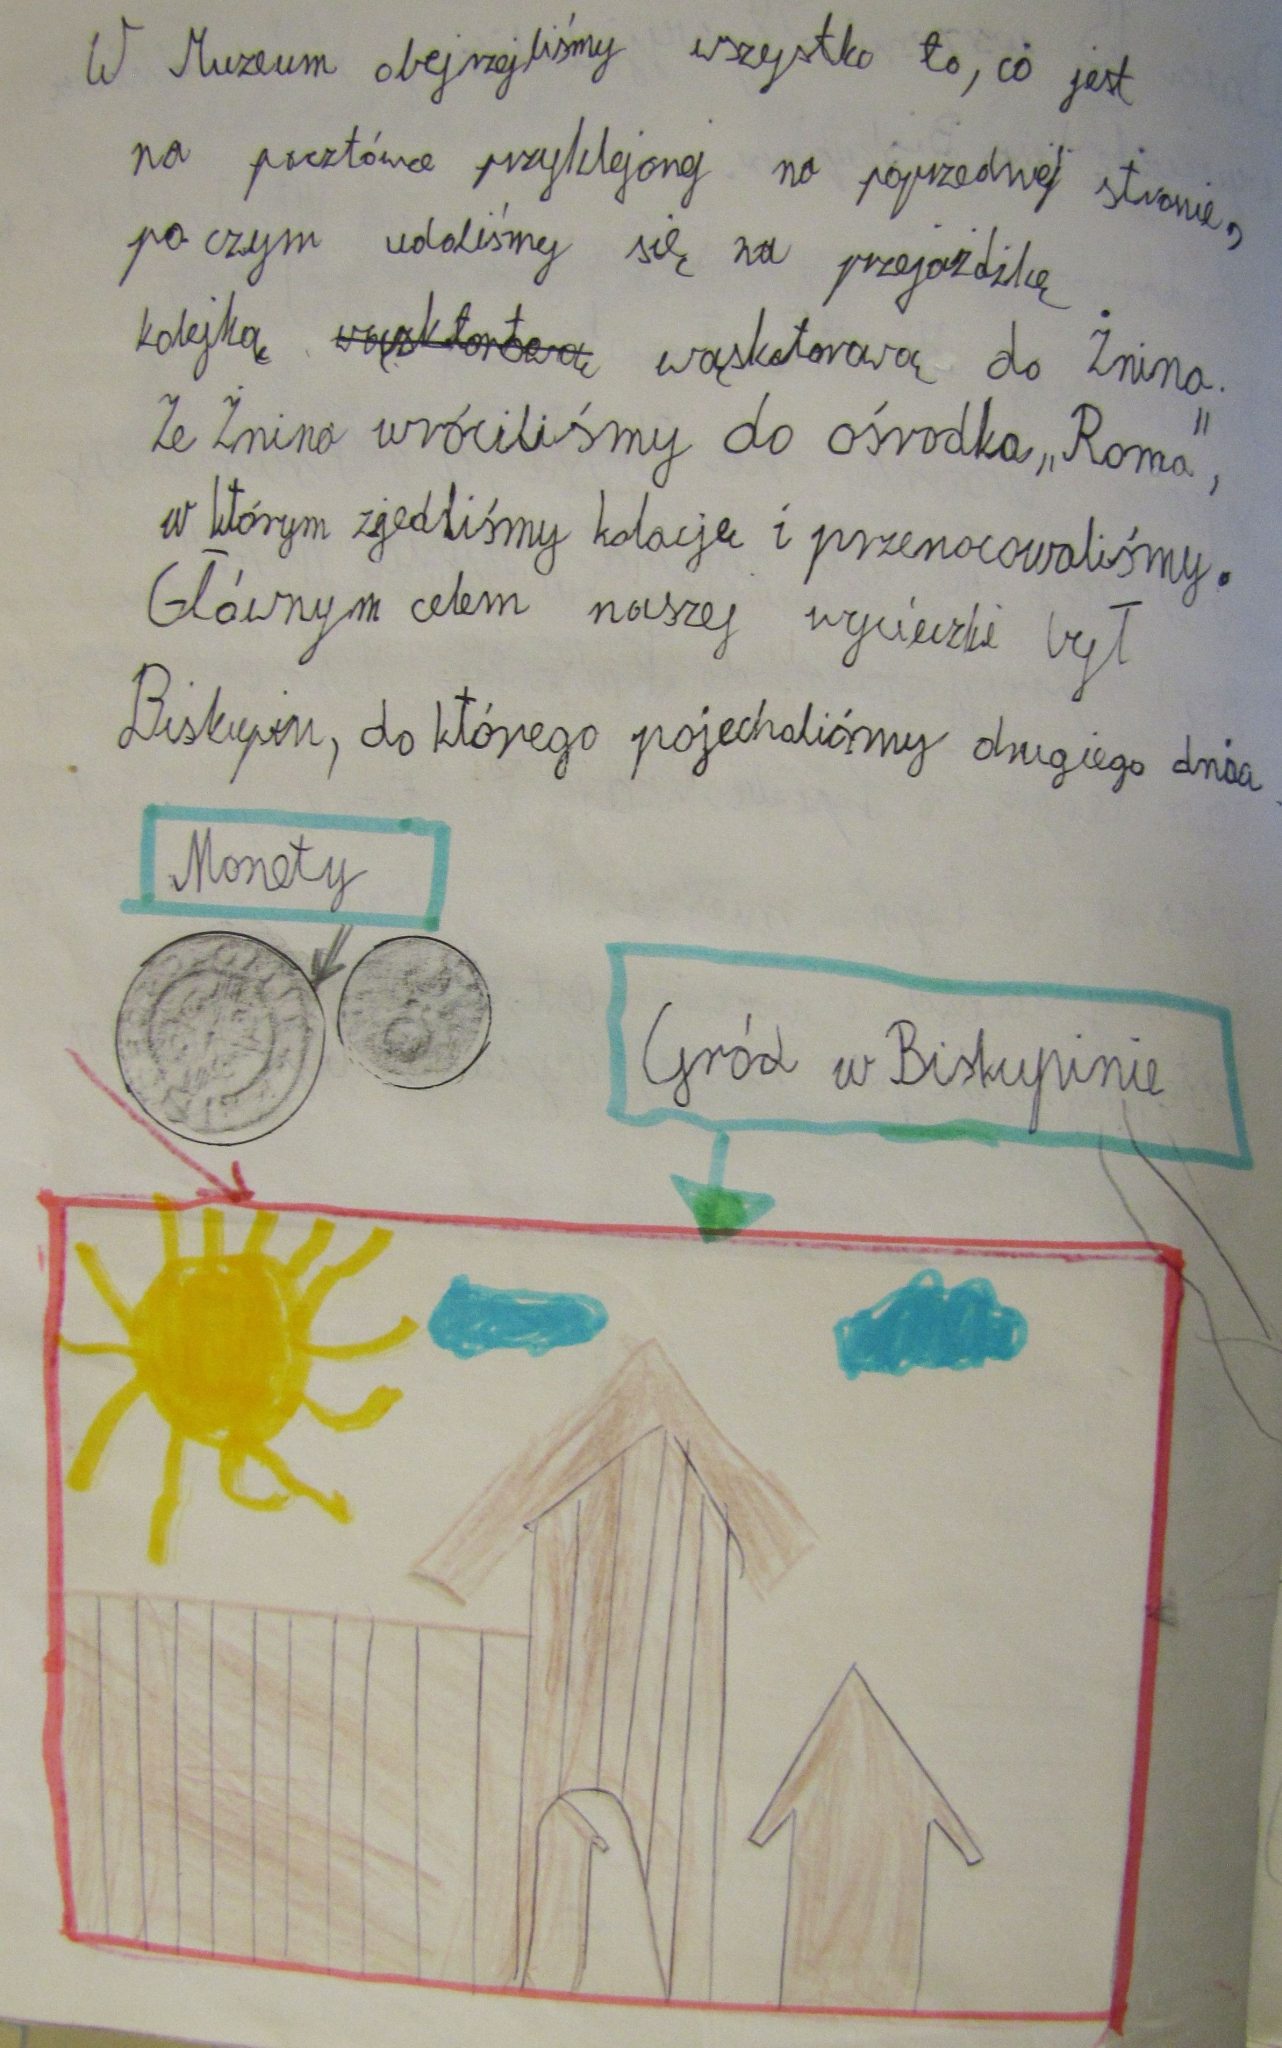 W Muzeum obejrzejliśmy wszystko to, co jest
na pocztówce przyklejonej na poprzedniej stronie,
po czym udaliśmy się na przejażdżkę
kolejką wąsktortową wąskotorową do Żnina.
Ze Żnina wróciliśmy do ośrodka „Roma",
w którym zjedliśmy kolację i przenocowaliśmy.
Głównym celem naszej wycieczki był
Biskupin, do którego pojechaliśmy drugiego dnia.
Monety
Gród w Biskupinie